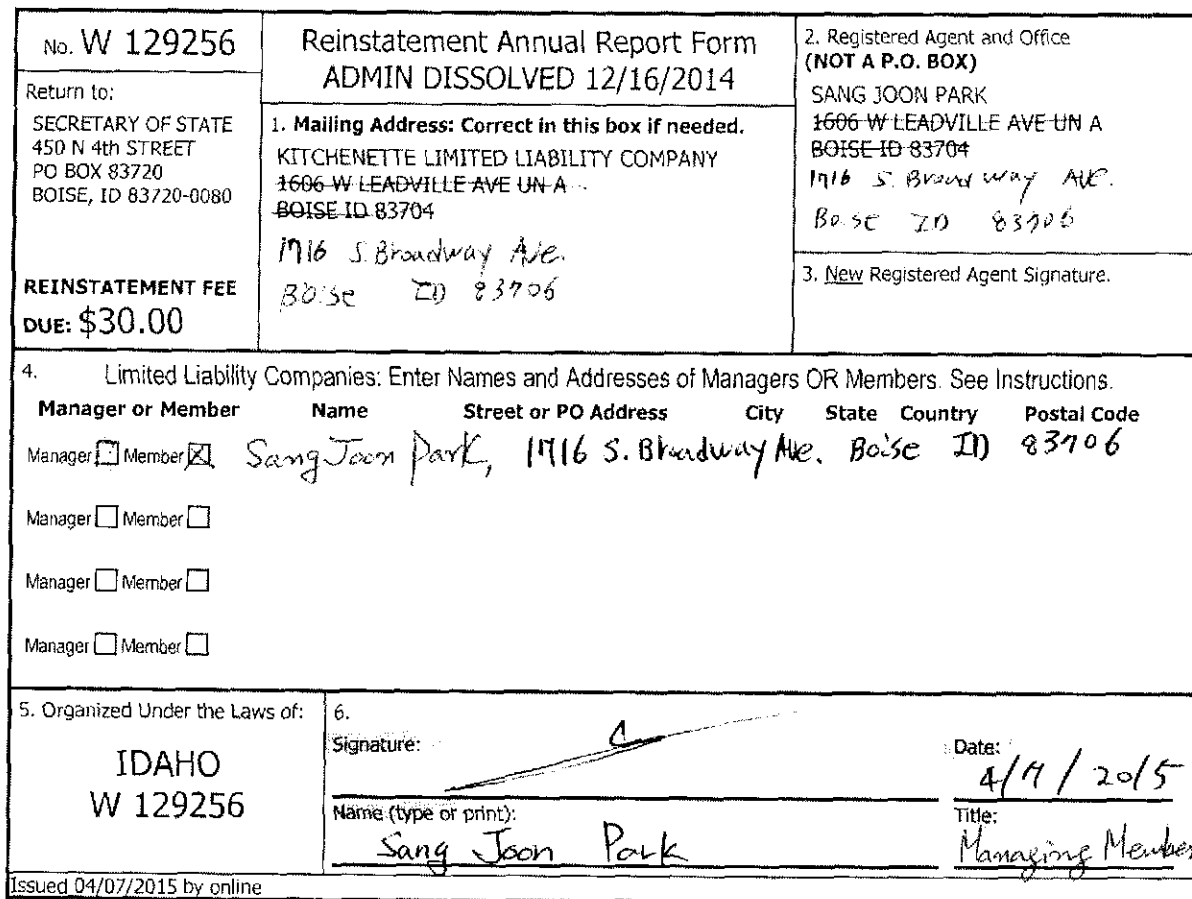 No. W 129256
Return to:
SECRETARY OF STATE
450 N 4th STREET
PO BOX 83720
BOISE, ID 83720-0080
REINSTATEMENT FEE
DUE: $30.00
Reinstatement Annual Report Form
ADMIN DISSOLVED 12/16/2014
1. Mailing Address: Correct in this box if needed.
KITCHENETTE LIMITED LIABILITY COMPANY
1606 W LEADVILLE AVE UN A
BOISE ID 83704
1716 S. Broadway Ave.
Boise ID 83706
2. Registered Agent and Office
(NOT A P.O. BOX)
SANG JOON PARK
1606 W LEADVILLE AVE UN A
BOISE ID 83704
1716 S. Broadway Ave.
Boise ID 83706
3. New Registered Agent Signature.
4. Limited Liability Companies: Enter Names and Addresses of Managers OR Members. See Instructions.
Manager or Member Name Street or PO Address City State Country Postal Code
Manager Member Sang Joon Park, 1716 S. Broadway Ave. Boise ID 83706
Manager Member
Manager Member
Manager Member
5. Organized Under the Laws of:
IDAHO
W 129256
6.
Signature:
Date:
4/7/2015
Name (type or print):
Sang Joon Park
Title:
Managing Member
Issued 04/07/2015 by online